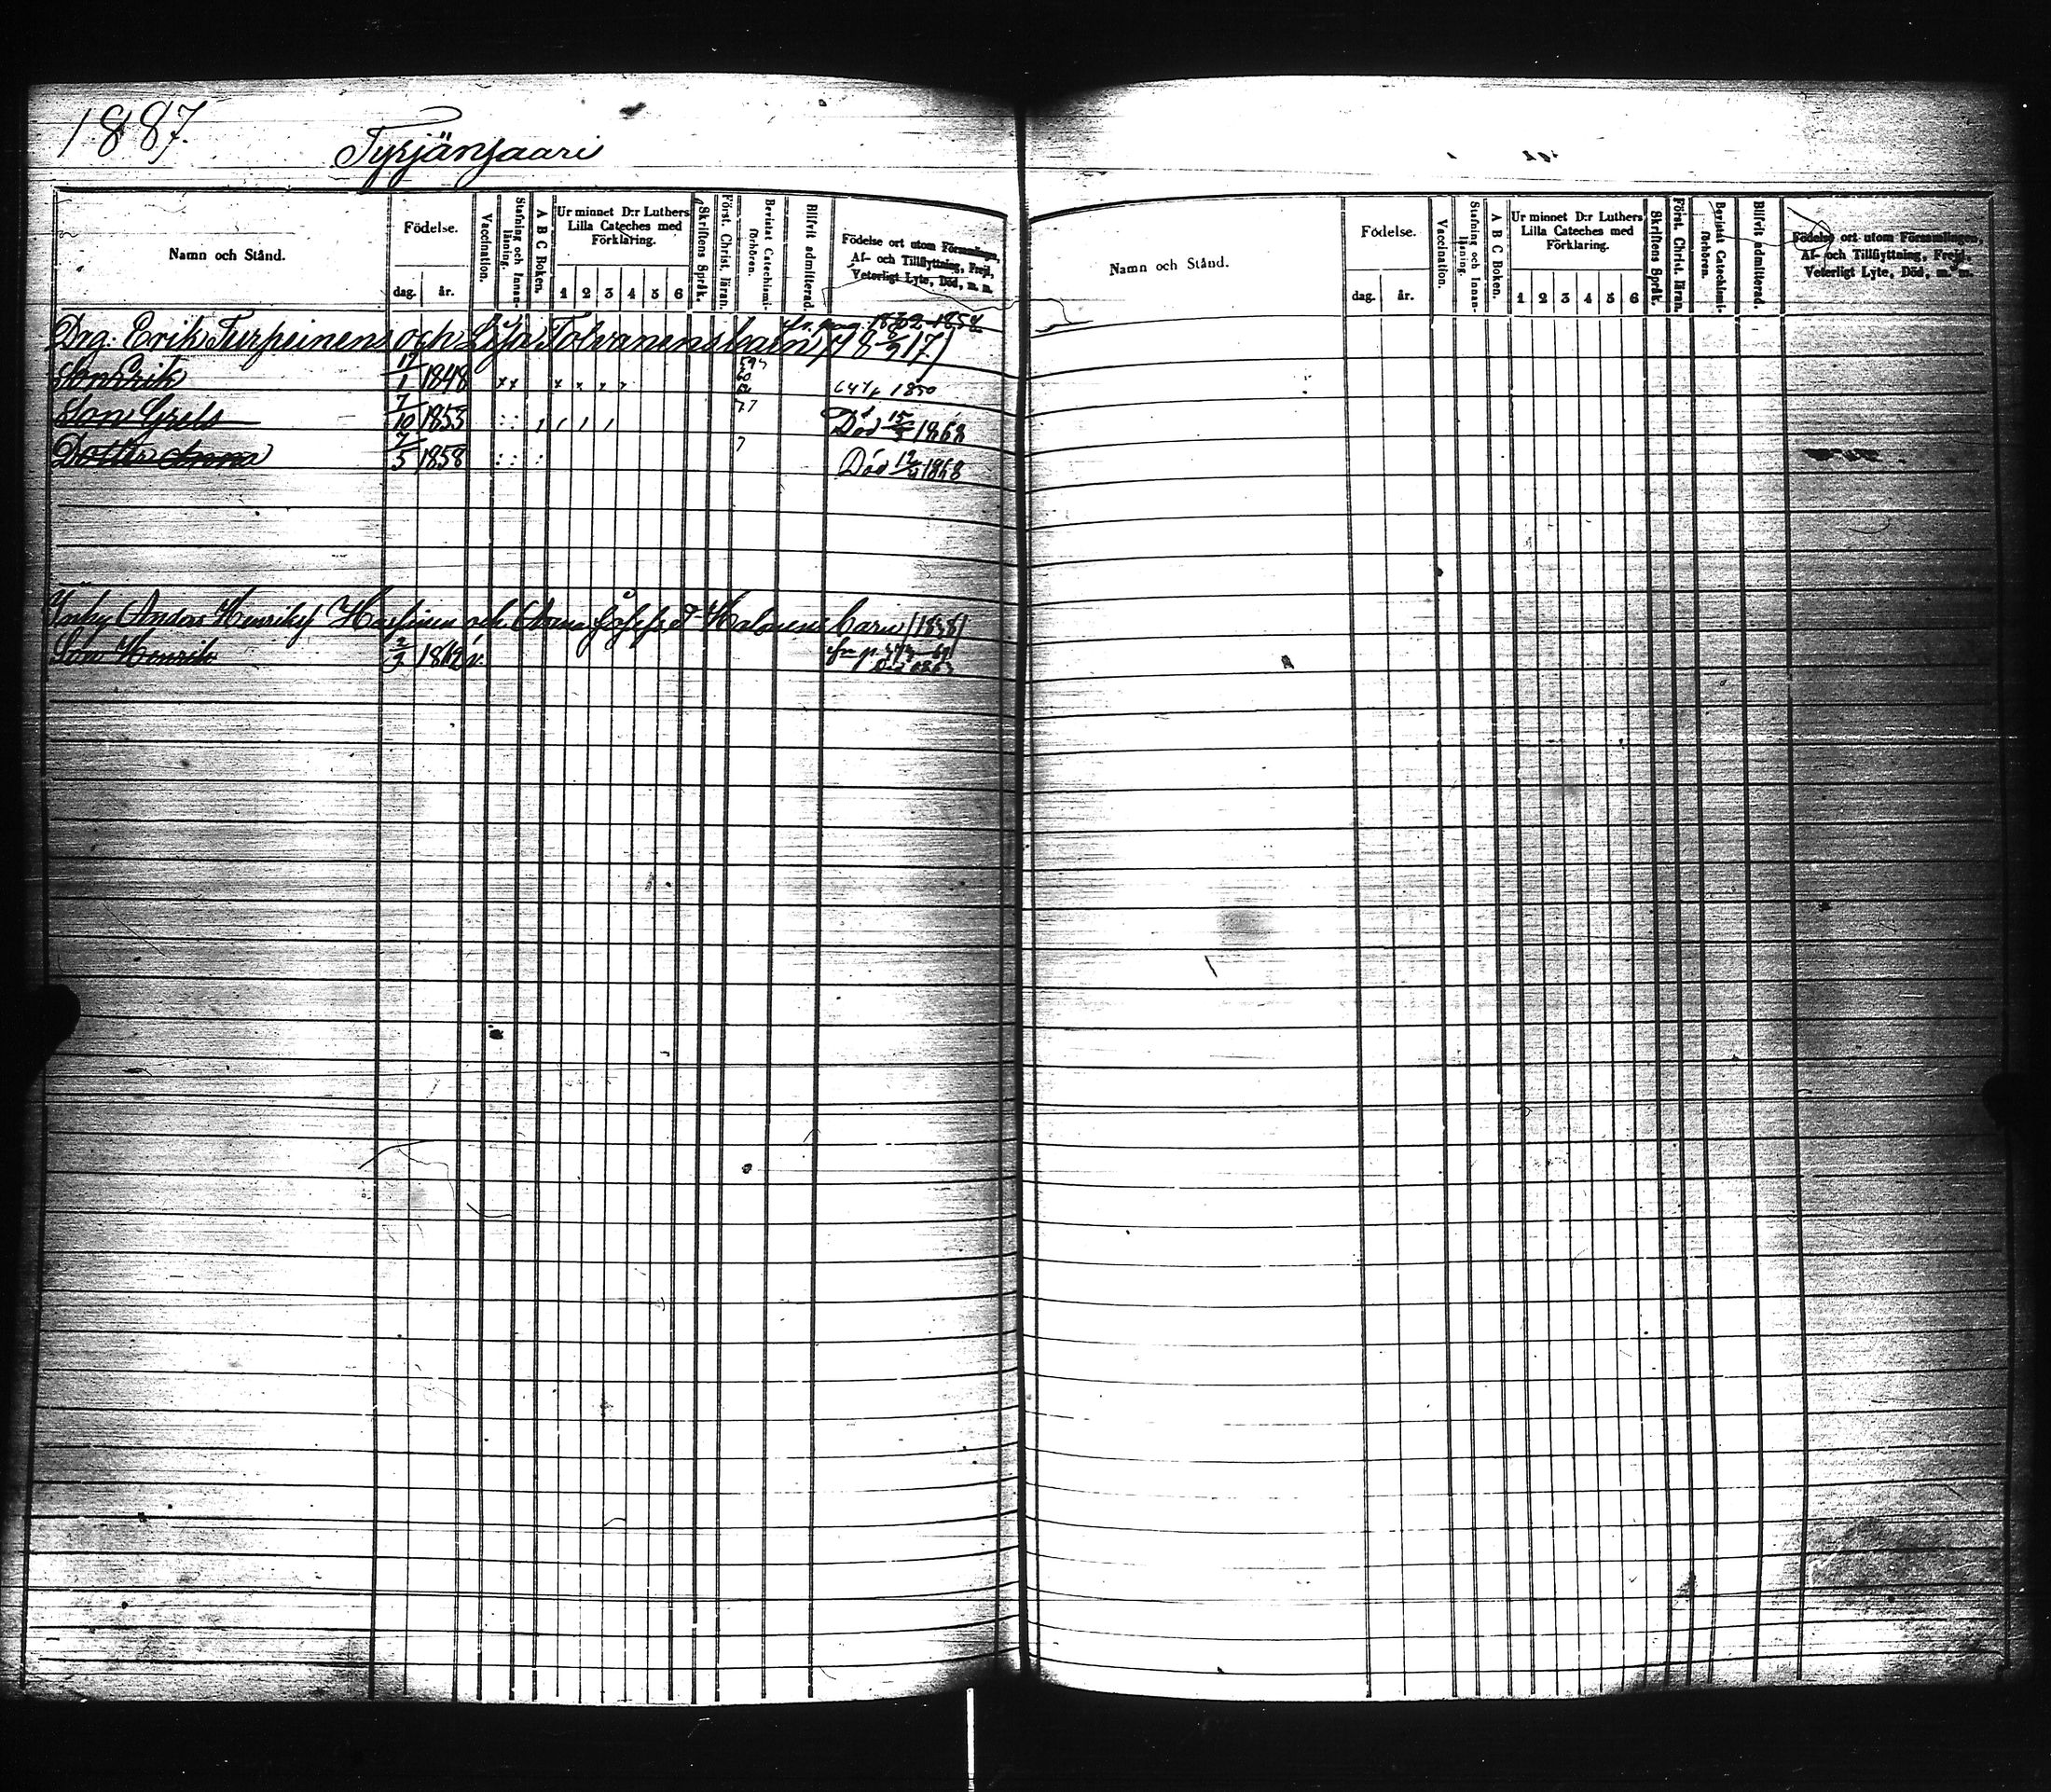 1887.
Tyrjänsaari
Namn och Stånd.
Födelse.
dag.
år.
Vaccination.
Stafning och Innan-läsning.
A B C Boken.
Ur minnet D:r Luthers Lilla Cateches med Förklaring.
1 2 3 4 5 6
Skriftens Språk.
Först. Christ. läran.
Bevistat Catechismi-förhören.
Blifvit admitterad
Födelse ort utom Församlingen,
Af- och Tillflyttning, Frejd,
Veterligt Lyte, Död, m. m.
Drg. Erik Turpeinens och Lisa Tolvanens barn
Son Erik 12/1 1848 x x x x x x 60 1850
Son Grels 7/10 1853 77 Död 15/5 1868
Dotter Anna 7/5 1858 7 Död 1868
Anders Henriks och Anna Josefs Dr Halonens barn /1838/
Son Henrik 2/3 1862 v.
Namn och Stånd.
Födelse.
dag.
år.
Vaccination.
Stafning och Innan-läsning.
A B C Boken.
Ur minnet D:r Luthers Lilla Cateches med Förklaring.
1 2 3 4 5 6
Skriftens Språk.
Först. Christ. läran.
Bevistat Catechismi-förhören.
Blifvit admitterad.
Födelse ort utom Församlingen,
Af- och Tillflyttning, Frejd,
Veterligt Lyte, Död, m. m.